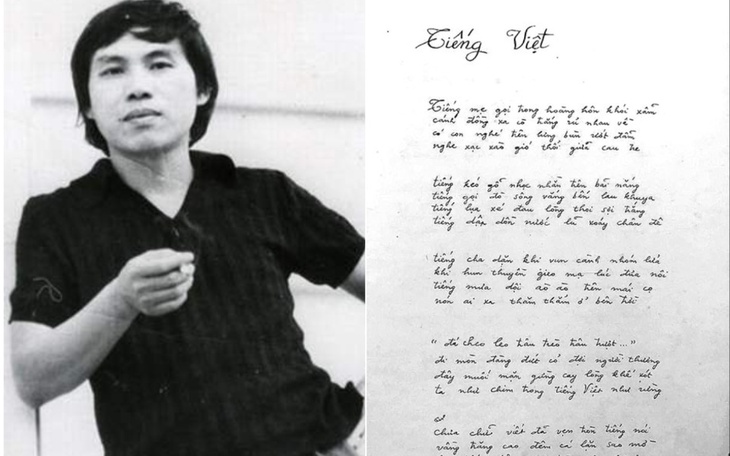 Tiếng Việt
Tiếng mẹ gọi trong hoàng hôn khói sẫm
cánh đồng xa cò trắng rủ nhau về
có con nghé trên lưng bùn ướt đẫm
nghe xạc xào gió thổi giữa cau tre
tiếng kéo gỗ nhọc nhằn trên bãi nắng
tiếng gọi đò sông vắng bến lau khuya
tiếng lụa xé đau lòng thoi sợi trắng
tiếng dập dồn nước lũ xoáy chân đê
tiếng cha dặn khi vun cành nhóm lửa
khi hun thuyền gieo mạ lúc đưa nôi
tiếng mưa dội ào ào trên mái cọ
nón ai xa thăm thẳm ở bên trời
"đá cheo leo trâu trèo trâu trượt..."
đi mòn đàng đứt cỏ đợi người thương
đây muối mặn gừng cay lòng khế xót
ta như chim trong tiếng Việt như rừng
chưa chữ viết đã vẹn tròn tiếng nói
vầng trăng cao đêm cá lặn sao mờ